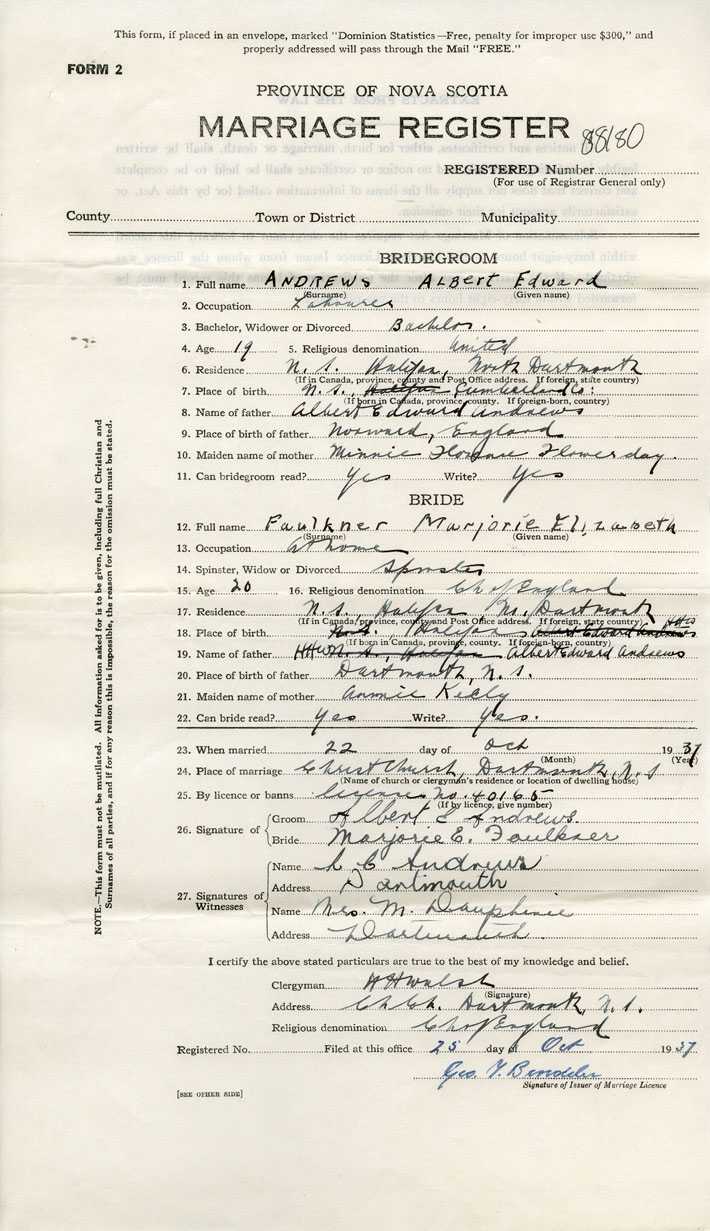 This form, if placed in an envelope, marked "Dominion Statistics—Free, penalty for improper use $300," and
properly addressed will pass through the Mail "FREE."
FORM 2
PROVINCE OF NOVA SCOTIA
MARRIAGE REGISTER 88180
REGISTERED Number
(For use of Registrar General only)
County Town or District Municipality
BRIDEGROOM
1. Full name ANDREWS Albert Edward
(Surname) (Given name)
2. Occupation Labourer
3. Bachelor, Widower or Divorced Bachelor.
4. Age 19 5. Religious denomination United
6. Residence N. S. Halifax, North Dartmouth
(If in Canada, province, county and Post Office address. If foreign, state country)
7. Place of birth N. S., Halifax Cumberland Co:
(If born in Canada, province, county. If foreign-born, country)
8. Name of father Albert Edward Andrews
9. Place of birth of father Norward, England
10. Maiden name of mother Minnie Florence Flowerday.
11. Can bridegroom read? Yes Write? Yes
BRIDE
12. Full name Faulkner Marjorie Elizabeth
(Surname) (Given name)
13. Occupation at home
14. Spinster, Widow or Divorced Spinster
15. Age 20 16. Religious denomination Ch of England
17. Residence N. S., Halifax No. Dartmouth
(If in Canada, province, county and Post Office address. If foreign, state country)
18. Place of birth N. S. Halifax Albert Edward Andrews HHW
(If born in Canada, province, county. If foreign-born, country)
19. Name of father HHW N. S., Halifax Albert Edward Andrews
20. Place of birth of father Dartmouth, N. S.
21. Maiden name of mother Annie Kiely
22. Can bride read? Yes Write? Yes.
23. When married 22 day of Oct 1937
(Month) (Year)
24. Place of marriage Christ Church, Dartmouth, N. S
(Name of church or clergyman's residence or location of dwelling house)
25. By licence or banns license No. 40165
(If by licence, give number)
26. Signature of Groom Albert E Andrews.
Bride Marjorie E. Faulkner
27. Signatures of Witnesses
Name L C Andrews
Address Dartmouth
Name Mrs. M. Dauphinie
Address Dartmouth.
I certify the above stated particulars are true to the best of my knowledge and belief.
Clergyman HHWalsh
(Signature)
Address Ch Ch. Dartmouth, N. S.
Religious denomination Ch of England
Registered No. Filed at this office 25 day of Oct 1937
Geo.
Signature of Issuer of Marriage Licence
[SEE OTHER SIDE]
NOTE.—This form must not be mutilated. All information asked for is to be given, including full Christian and
Surnames of all parties, and if for any reason this is impossible, the reason for the omission must be stated.